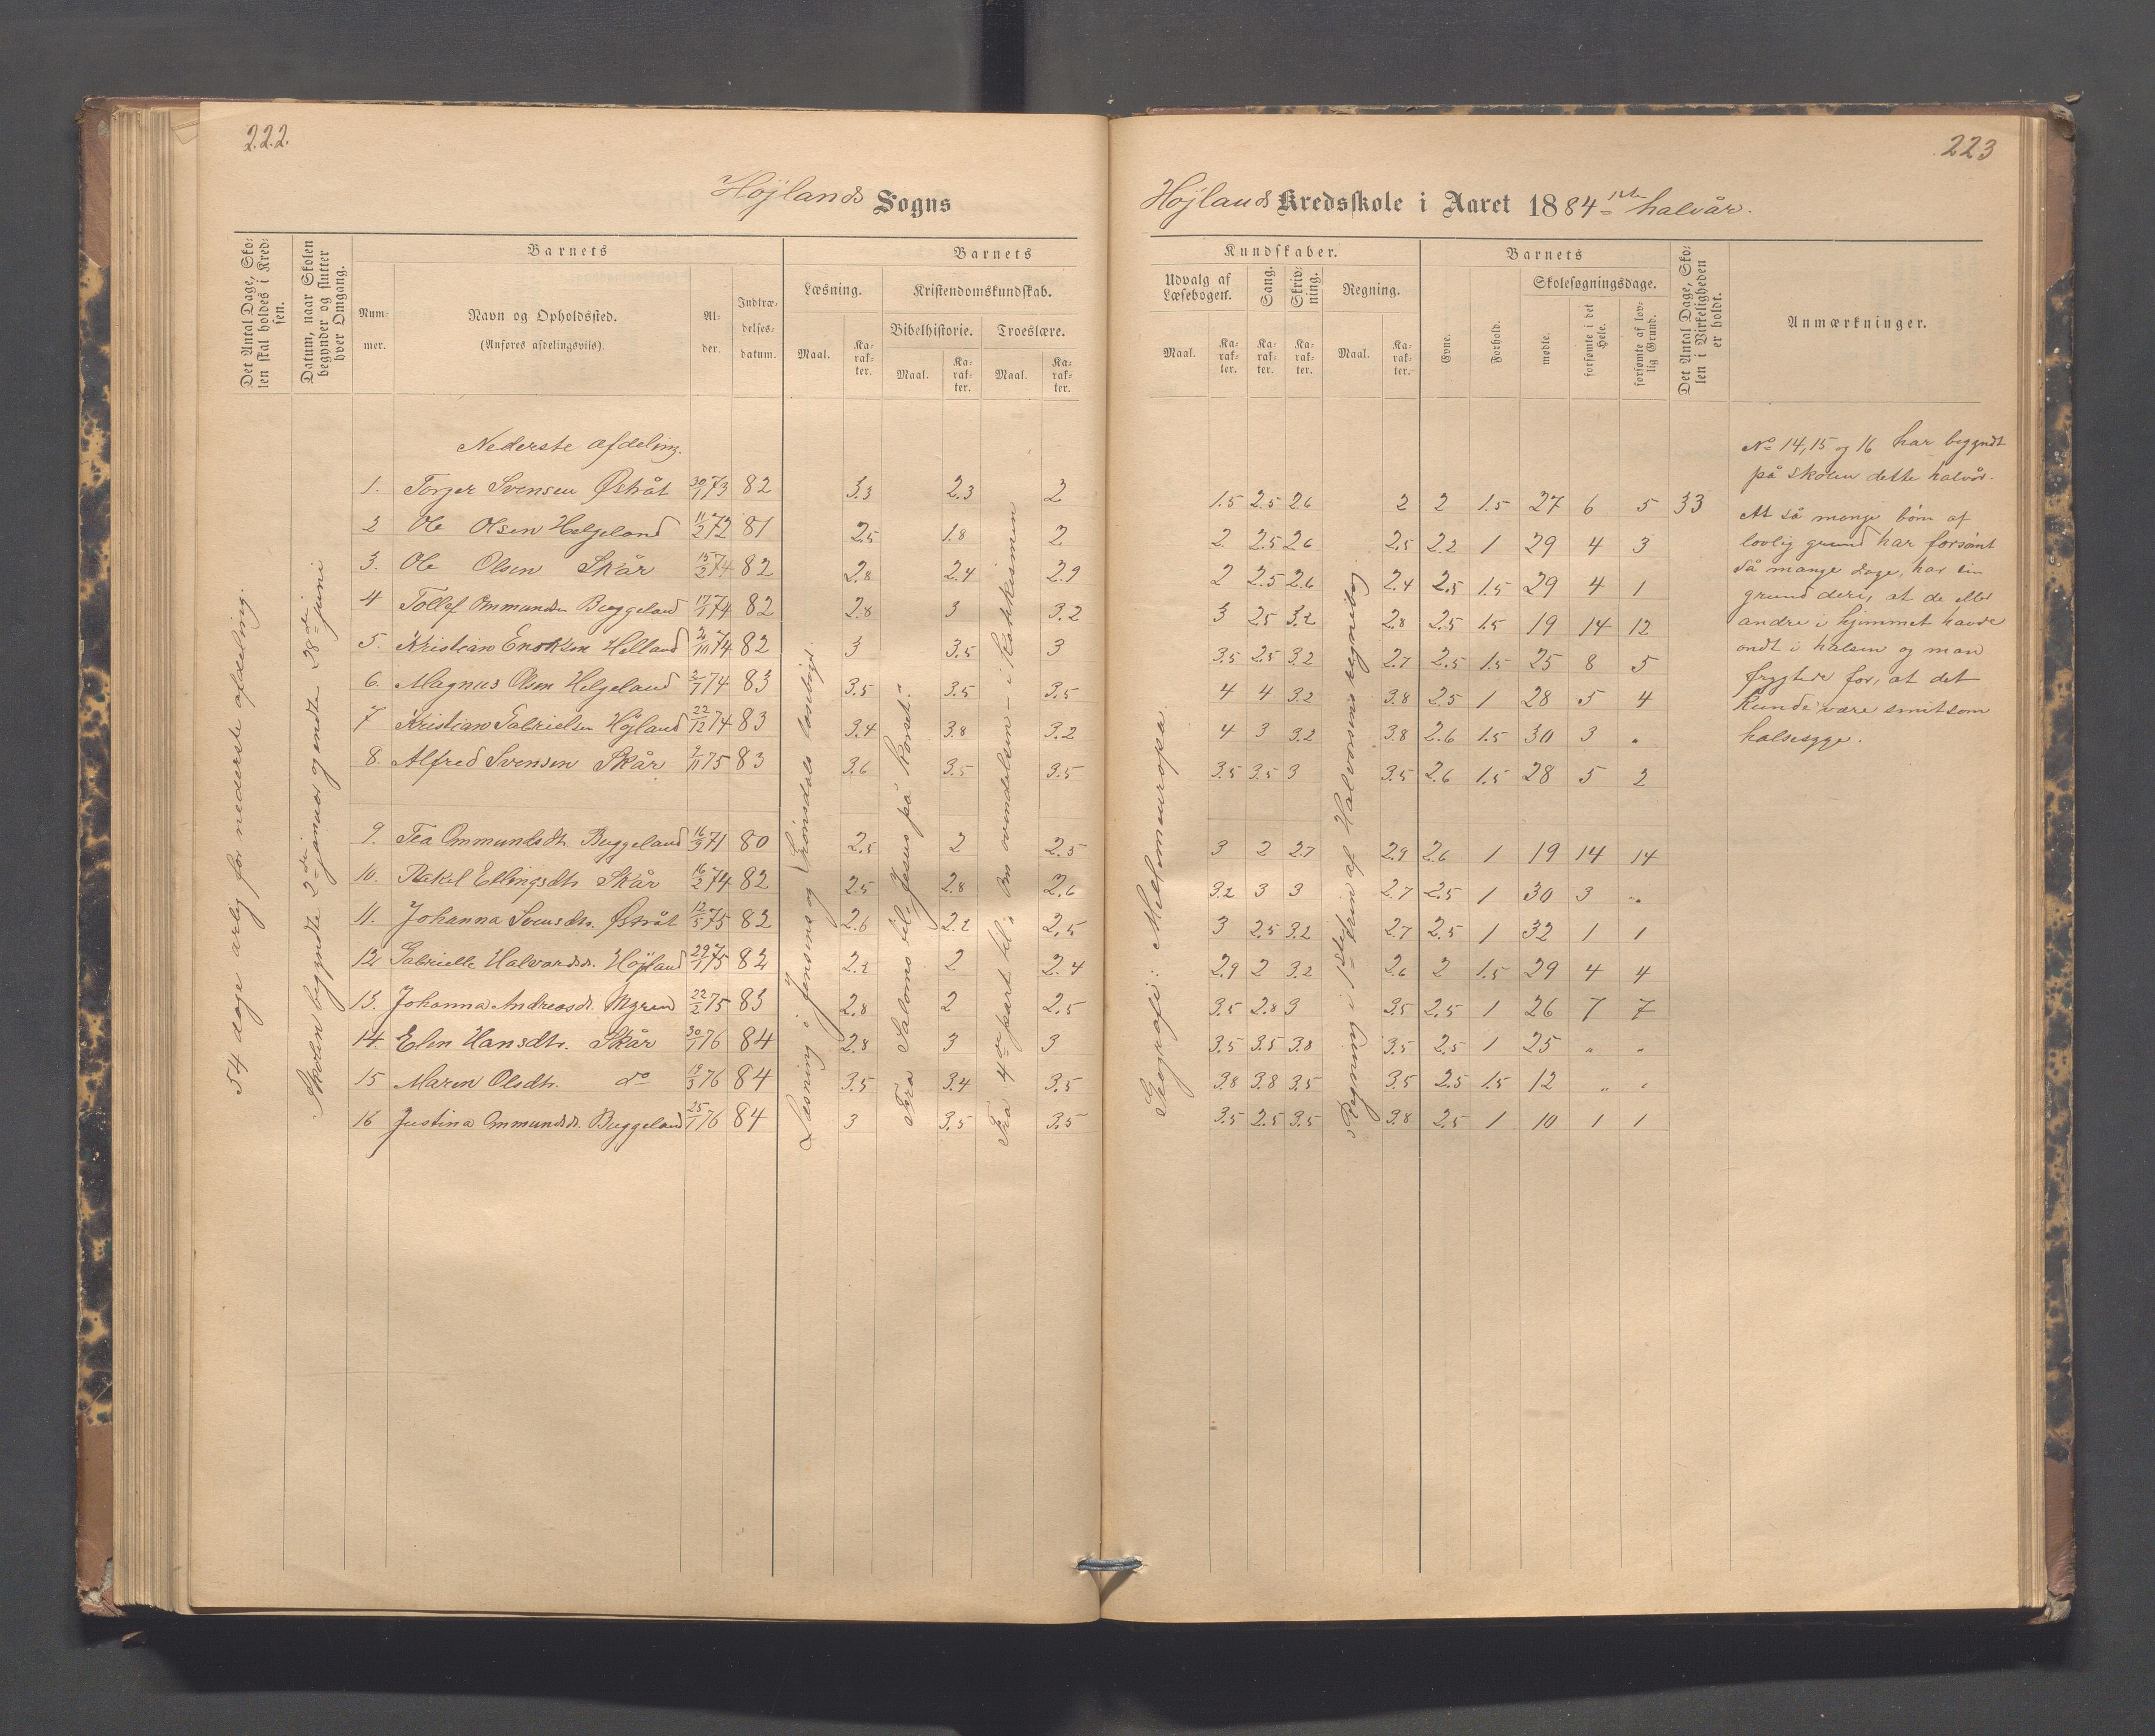 222.
Højlands Sogns
Det Antal Dage, Sko-
len skal holdes i Kred-
sen.
Datum, naar Skolen
begynder og slutter
hver Omgang.
Barnets
Num-
mer.
Navn og Opholdssted.
(Anføres afdelingsviis).
Al-
der.
Indtræ-
delses-
datum.
Barnets
Læsning.
Maal.
Ka-
rak-
ter.
Kristendomskundskab.
Bibelhistorie.
Maal.
Ka-
rak-
ter.
Troeslære.
Maal.
Ka-
rak-
ter.
54 dage årlig for nederste afdeling.
Skolen begyndte 2den januar og endte 28de juni
Læsning i Jensens og læsebog.
Fra Salomo til "Jesus på korset."
Fra 4de part til: Om ovindelsen – i katekismen
Nederste afdeling.
1. Torger Svensen Østråt 30/1 73 82 3.3 2.3 2
2 Ole Olsen Helgeland 11/2 72 81 2.5 1.8 2
3. Ole Olsen Skår 15/2 74 82 2.8 2.4 2.9
4 Tollef Ommundsn Buggeland 17/1 74 82 2.8 3 3.2
5. Kristian Enoksen Helland 2/10 74 82 3 3.5 3
6. Magnus Olsen Helgeland 2/7 74 83 3.5 3.5 3.5
7 Kristian Gabrielsen Højland 22/12 74 83 3.4 3.8 3.2
8. Alfred Svensen Skår 2/11 75 83 3.6 3.5 3.5
9. Tea Ommundsdtr. Buggeland 16/9 71 80 2.5 2 2.5
10. Rakel Ellingsdtr Skår 16/2 74 82 2.5 2.8 2.6
11. Johanna Svensdtr. Østråt 12/5 75 82 2.6 2.2 2.5
12. Gabrielle Halvordsdr. Højland 29/1 75 82 2.2 2 2.4
13. Johanna Andreasdr. Myren 22/2 75 83 2.8 2 2.5
14. Elen Hansdtr. Skår 30/1 76 84 2.8 3 3
15 Maren Olsdtr. do 19/3 76 84 3.5 3.4 3.5
16 Justina Ommundsdr. Buggeland 25/1 76 84 3 3.5 3.5
223
Højlands Kredsskole i Aaret 1884 1ste halvår.
Kundskaber.
Udvalg af
Læsebogen.
Maal.
Ka-
rak-
ter.
Sang.
Ka-
rak-
ter.
Skriv-
ning.
Ka-
rak-
ter.
Regning.
Maal.
Ka-
rak-
ter.
Barnets
Evne.
Forhold.
Skolesøgningsdage.
mødte.
forsømte i det
Hele.
forsømte af lov-
lig Grund.
Det Antal Dage, Sko-
len i Virkeligheden
er holdt.
Anmærkninger.
Geografi: Mellemeuropa.
Regning i 1ste trin af Halvorsens regnebog.
1.5 2.5 2.6 2 2 1.5 27 6 5 33
2 2.5 2.6 2.5 2.2 1 29 4 3
2 2.5 2.6 2.4 2.5 1.5 29 4 1
3 2.5 3.2 2.8 2.5 1.5 19 14 12
3.5 2.5 3.2 2.7 2.5 1.5 25 8 5
4 4 3.2 3.8 2.5 1 28 5 4
4 3 3.2 3.8 2.6 1.5 30 3 "
3.5 3.5 3 3.5 2.6 1.5 28 5 2
3 2 2.7 2.9 2.6 1 19 14 14
3.2 3 3 2.7 2.5 1 30 3 "
3 2.5 3.2 2.7 2.5 1 32 1 1
2.9 2 3.2 2.6 2 1.5 29 4 4
3.5 2.8 3 3.5 2.5 1 26 7 7
3.5 3.5 3.8 3.5 2.5 1 25 " "
3.8 3.8 3.5 3.5 2.5 1.5 12 " "
3.5 2.5 3.5 3.8 2.5 1 10 1 1
No 14, 15 og 16 har begyndt
på skolen dette halvår.
At så mange børn af
lovlig grund har forsømt
så mange dage, har sin
grund deri, at de eller
andre i hjemmet havde
ondt i halsen og man
frygtede for, at det
kunde være smitsom
halssyge.